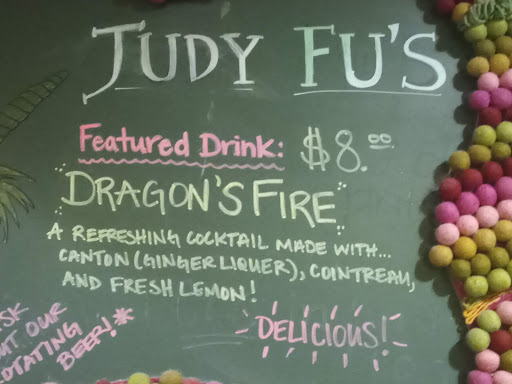 JUDY FU'S
Featured Drink: $8.00
"DRAGON'S FIRE"
A REFRESHING COCKTAIL MADE WITH...
CANTON (GINGER LIQUER), COINTREAU,
AND FRESH LEMON!
DELICIOUS!
SK
UT OUR
OTATING
BEER!*